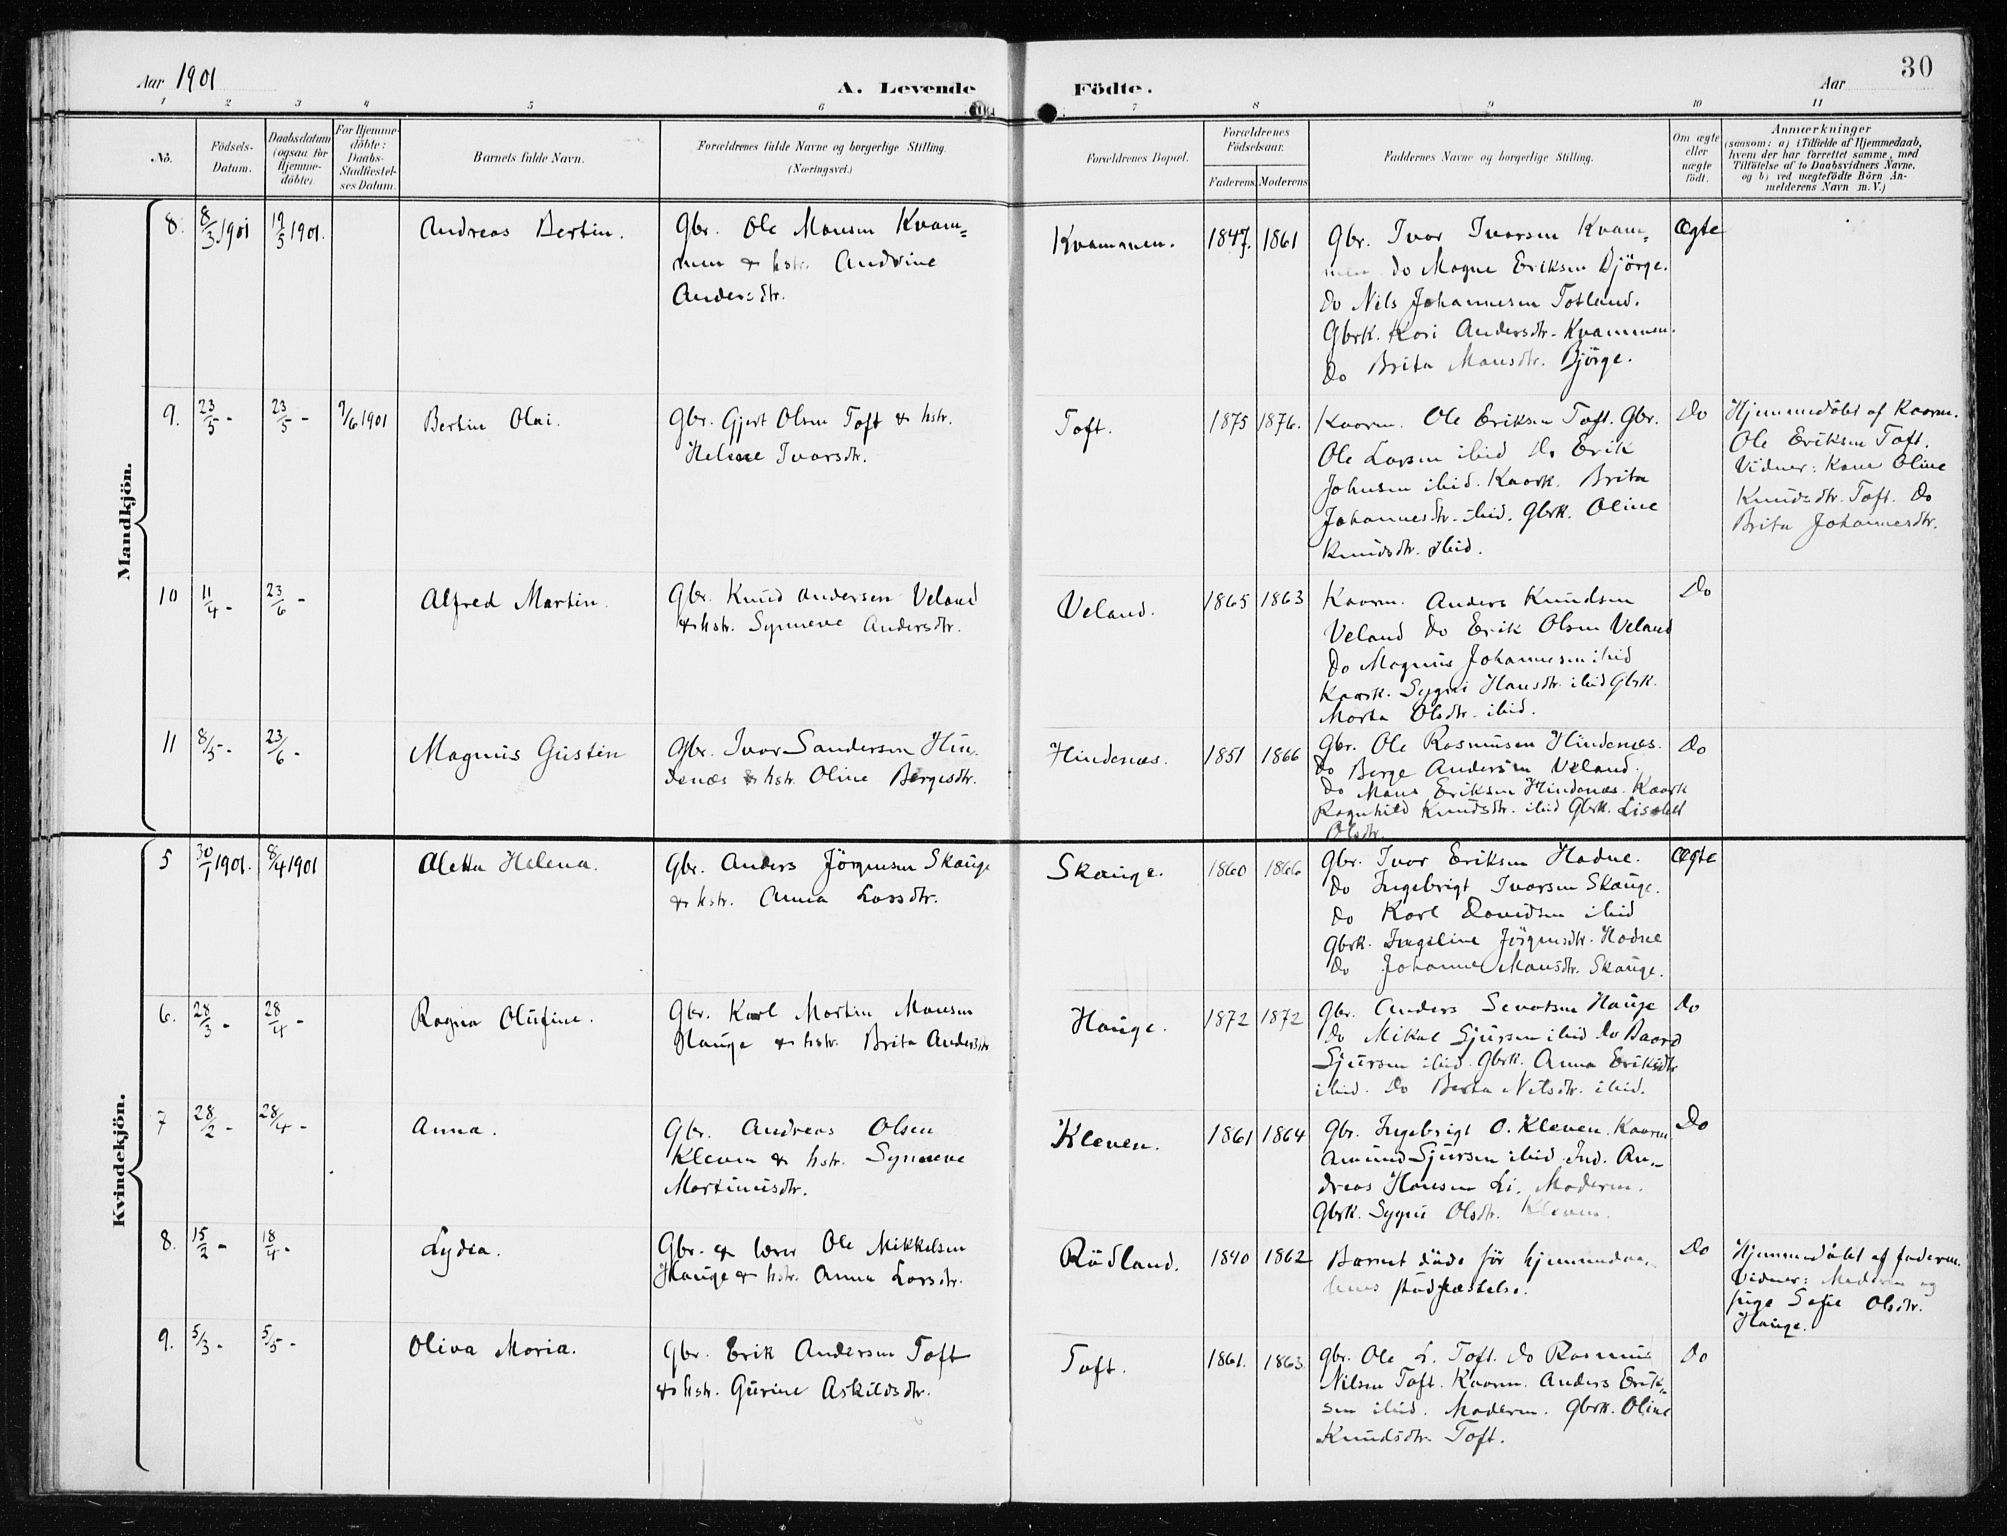 30
Aar 1901
A. Levende Födte.
Aar
1 2 3 4 5 6 7 8 9 10 11
No.
Födsels-
Datum.
Daabsdatum
(ogsaa for
Hjemme-
döbte).
For Hjemme-
döbte:
Daabs-
Stadfæstel-
ses Datum.
Barnets fulde Navn.
Forældrenes fulde Navne og borgerlige Stilling.
(Næringsvei.)
Forældrenes Bopæl.
Forældrenes
Födselsaar.
Faderens. Moderens.
Faddernes Navne og borgerlige Stilling.
Om ægte
eller
uægte
födt.
Anmærkninger
(saasom: a) i Tilfælde af Hjemmedaab,
hvem der har forrettet samme, med
Tilföielse af to Daabsvidners Navne,
og b) ved uægtefödte Börn An-
melderens Navn m. V.)
Mandkjön.
8. 8/3 1901 12/5 1901.
Andreas Bertin.
Gbr. Ole Monsen Kvam=
men & hstr. Andrine
Andersdtr.
Kvammen.
1847. 1861
Gbr. Ivar Ivarsen Kvam=
men do Magne Eriksen Björge.
do Nils Johannesen Totland.
Gbrk. Kari Andersdtr. Kvammen.
do Brita Monsdtr. Björge.
Ægte
9. 23/5 - 23/5 - 9/6 1901
Bertin Olai.
Gbr. Gjert Olsen Toft & hstr.
Helene Ivarsdtr.
Toft.
1875 1876.
Kaarm. Ole Eriksen Toft. Gbr.
Ole Larsen ibid Do Erik
Johnsen ibid. Kaark. Brita
Johannesdtr. ibid. Gbrk. Oline
Knudsdtr. ibid.
Do
Hjemmedöbt af Kaarm.
Ole Eriksen Toft.
Vidner: Kone Oline
Knudsdtr. Toft. Do
Brita Johannesdtr.
10 11/4 - 23/6 -
Alfred Martin.
Gbr. Knud Andersen Veland
& hstr. Synneve Andersdtr.
Veland.
1865 1863
Kaarm. Anders Knudsen
Veland Do Erik Olsen Veland
Do Magnus Johannesen ibid
Kaark. Sygni Hansdtr. ibid Gbrk.
Marta Olsdtr. ibid.
Do
11 8/5 - 23/6 -
Magnus Gustin
Gbr. Ivar Sandersen Hin
denæs & hstr. Oline Bergesdtr.
Hindenæs.
1851 1866
Gbr. Ole Rasmusen Hindenæs.
Do Berge Andersen Veland.
Do Mons Eriksen Hindenæs. Kaark
Ragnhild Knudsdtr. ibid Gbrk. Lisabet
Olsdtr.
Do
Kvindekjön.
5 30/1 1901. 8/4 1901
Aletta Helena.
Gbr. Anders Jörgensen Skauge
& hstr. Anna Larsdtr.
Skauge.
1860 1866
Gbr. Ivar Eriksen Hadne.
Do Ingebrigt Ivarsen Skauge.
Do Karl Davidsen ibid
Gbrk. Ingeline Jörgensdtr. Hadne
Do Johanne Monsdtr. Skauge.
Ægte
6. 28/3 - 28/4 -
Ragna Olufine.
Gbr. Karl Martin Monsen
Hauge & hstr. Brita Andersdtr
Hauge.
1872 1872
Gbr. Anders Sevatsen Hauge
Do Mikal Sjursen ibid Do Baard
Sjursen ibid. Gbrk. Anna Eriksdtr
ibid. Do Berta Nilsdtr. ibid.
Do
7 28/2 - 28/4 -
Anna.
Gbr. Andreas Olsen
Kleven & hstr. Synneve
Martinusdtr.
Kleven.
1861 1864
Gbr. Ingebrigt O. Kleven. Kaarm
Amund Sjursen ibid. Ind. An-
dreas Hansen Li. Moderen.
Gbrk. Sygni Olsdtr. Kleven.
Do
8. 15/2 - 18/4 -
Lydia.
Gbr. & lærer Ole Mikkelsen
Hauge & hstr. Anna Larsdtr.
Rödland.
1840 1862
Barnet döde för hjemmedaa-
bens stadfæstelse.
Do
Hjemmedöbt af faderen.
Vidner: Moderen og
pige Sofie Olsdtr.
Hauge.
9. 5/3 - 5/5 -
Oliva Maria.
Gbr. Erik Andersen Toft
& hstr. Gurine Askildsdtr.
Toft.
1861. 1863
Gbr. Ole L. Toft. Do Rasmus
Nilsen Toft. Kaarm. Anders Erik=
sen ibid. Moderen. Gbrk. Oline
Knudsdtr. Toft.
Do